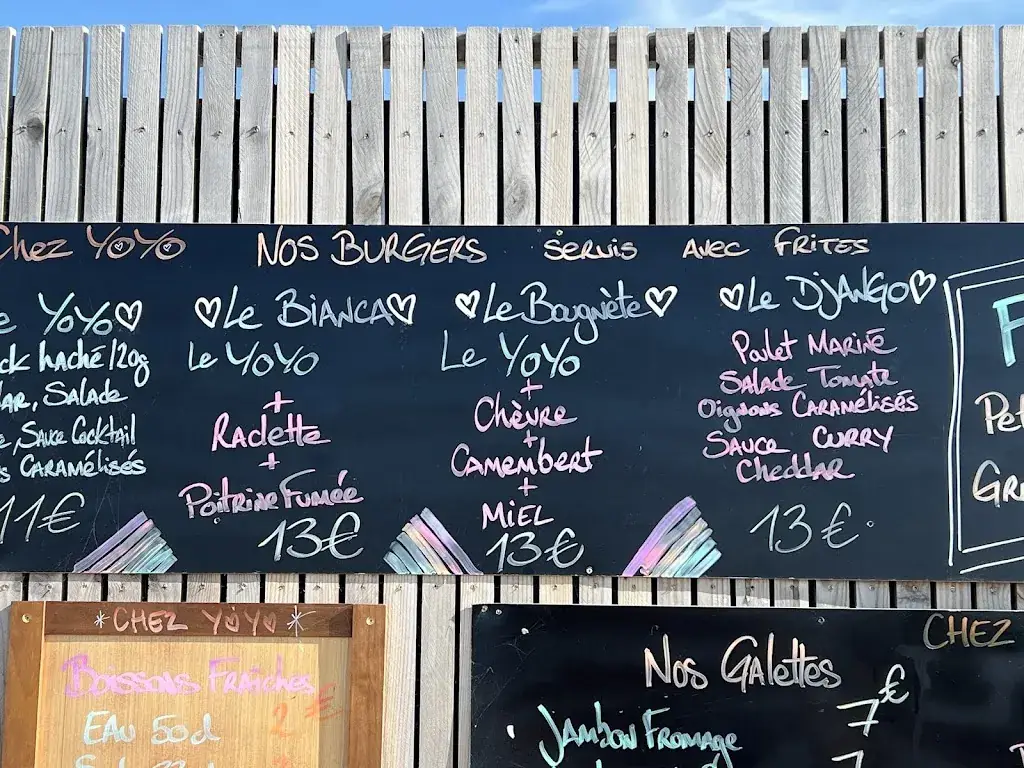 Chez YOYO NOS BURGERS SERVIS AVEC FRITES
YOYO
ck haché 120g
Salade
Sauce Cocktail
CARAMÉLISÉS
11€
Le BiANCA
Le YOYO
+
Raclette
+
Poitrine Fumée
13€
Le Bougnète
Le YOYO
+
Chèvre
+
Camembert
+
MiEL
13€
Le DjANGO
Poulet MARINÉ
Salade Tomate
Oignons CARAMÉLISÉS
SAUCE CURRY
Cheddar
13€
Pet
GR
CHEZ YOYO
Boissons Fraîches
EAU 50cl 2€
CHEZ
Nos Galettes
JAMBON FROMAGE 7€